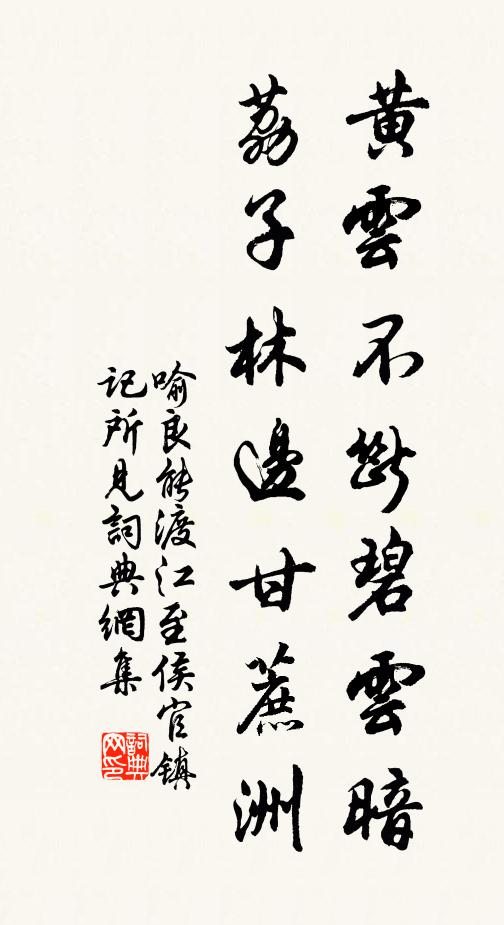 黃雲不斷碧雲暗
荔子林邊甘蔗洲
喻良能渡江至侯官鎮
記所見詞典網集
詞典
网印